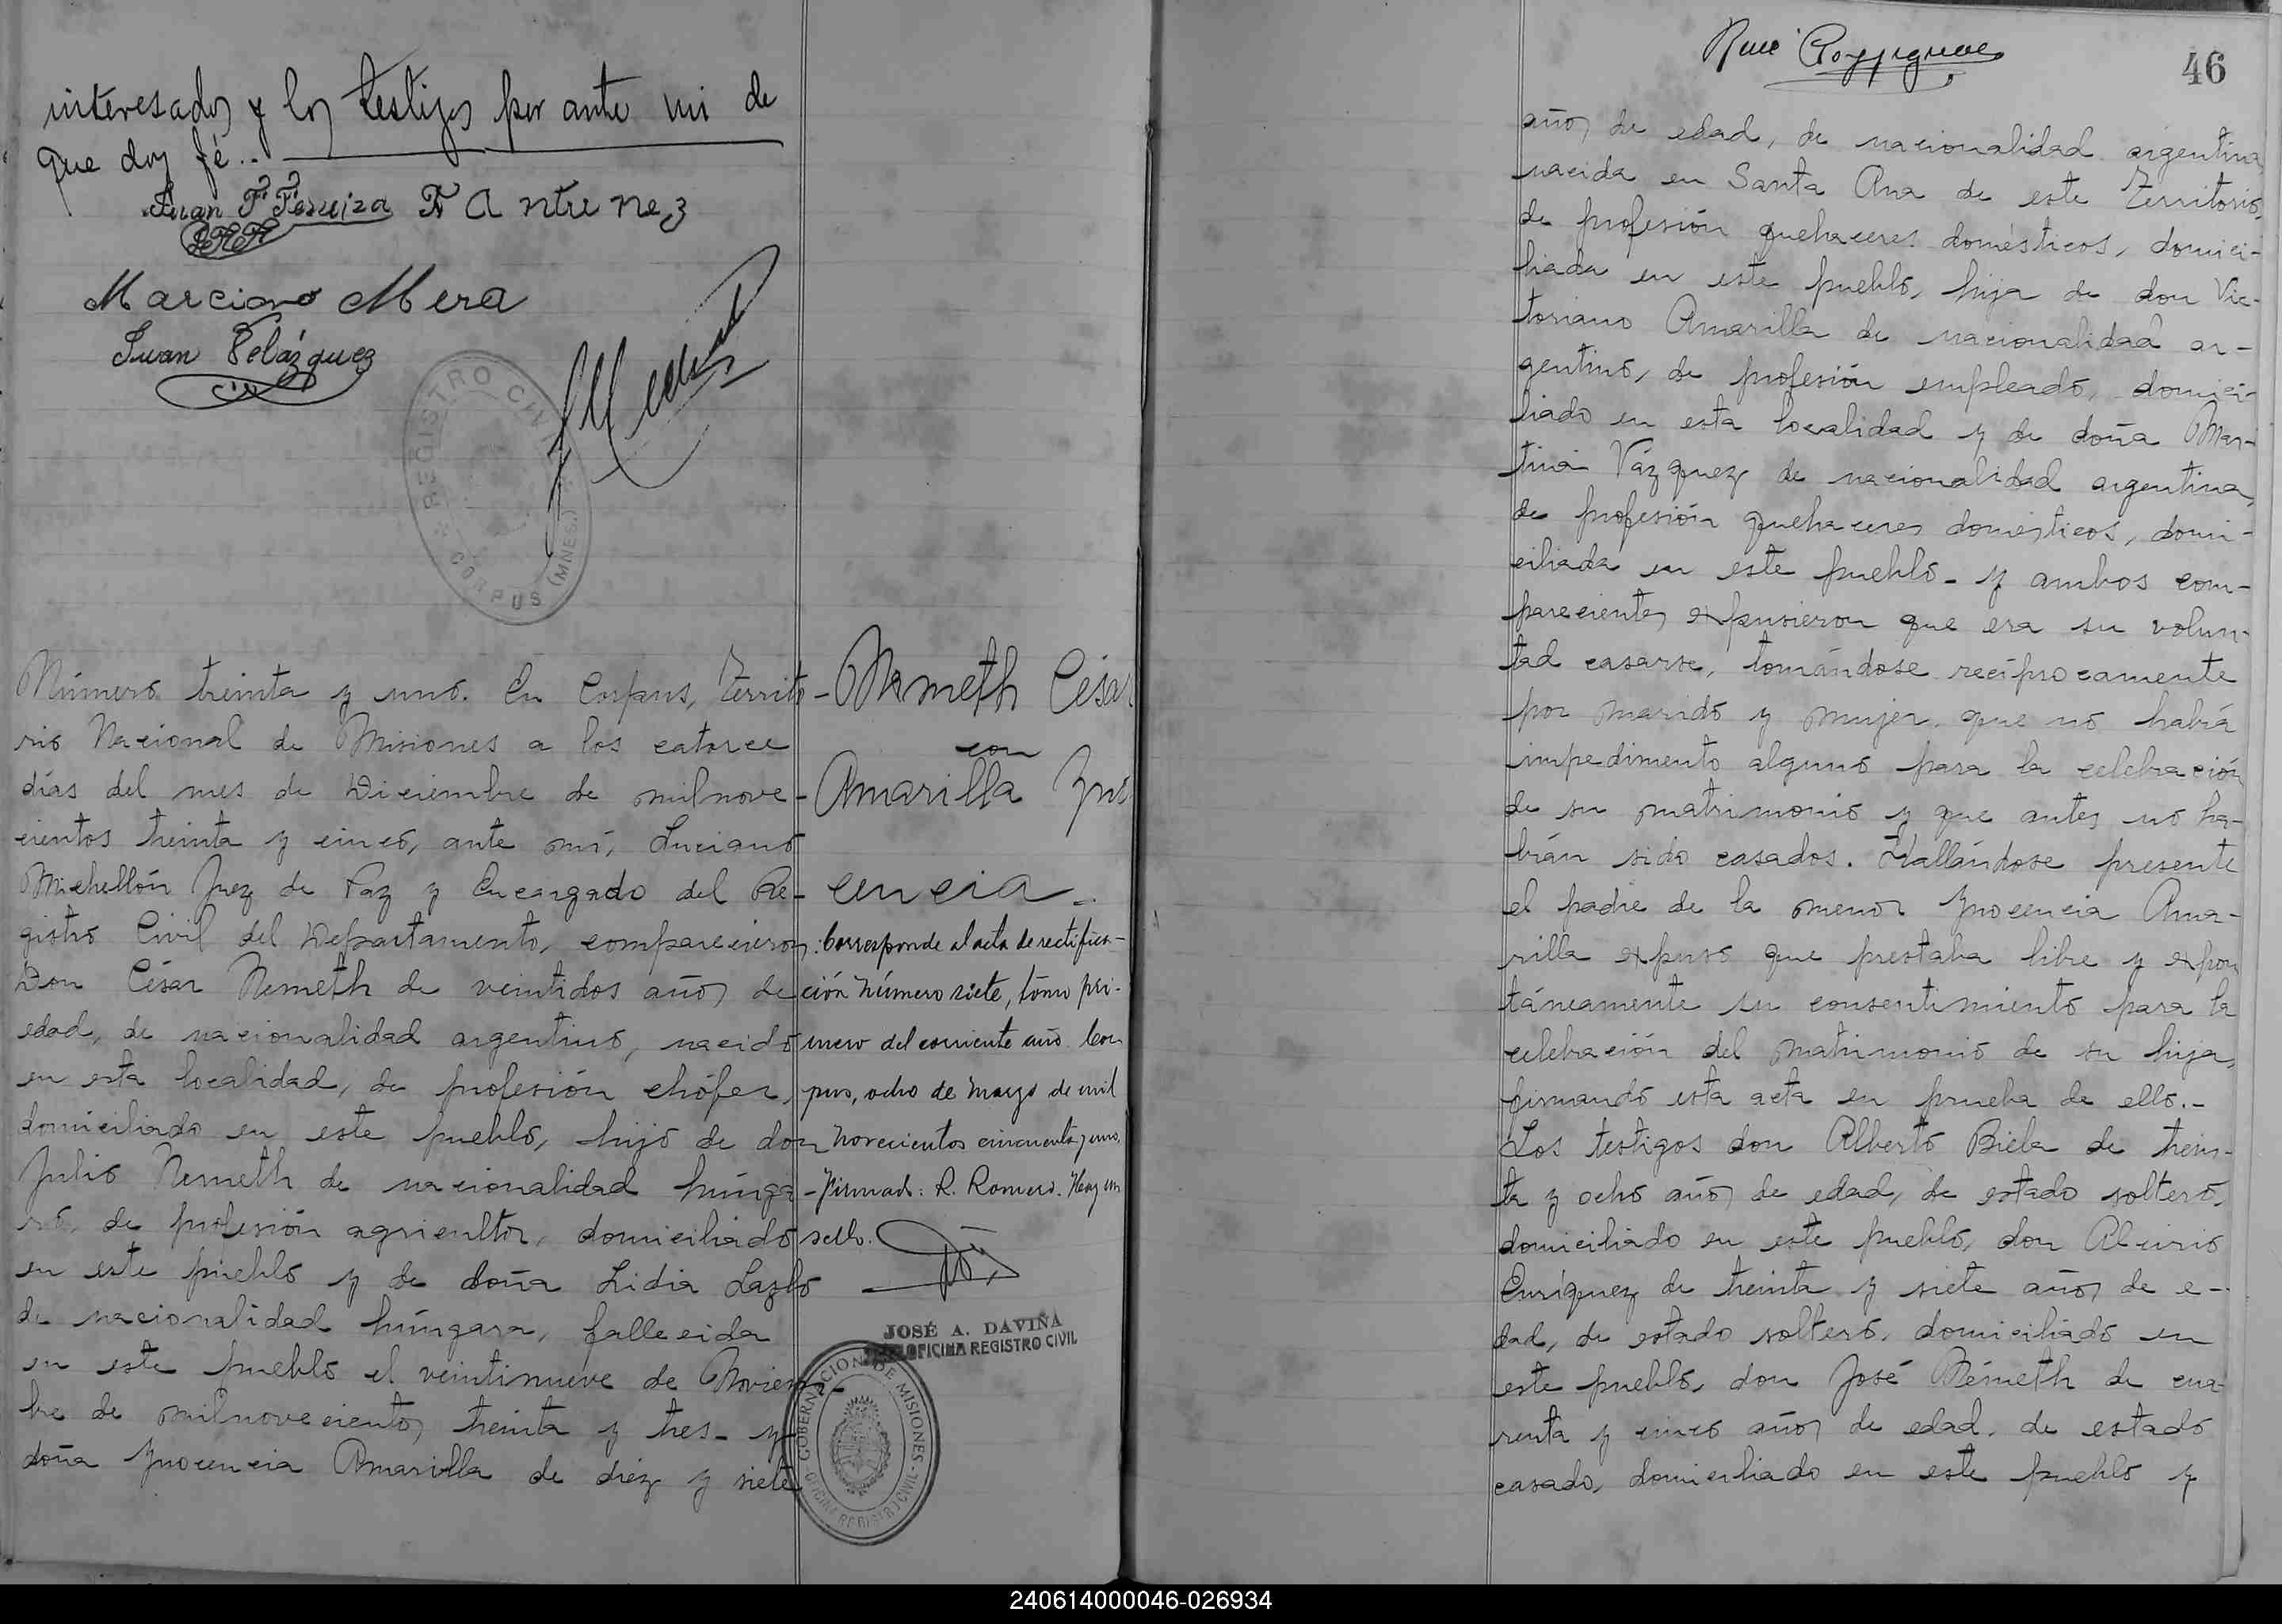 interesados y los testigos por ante mi de
que doy fé..
Juan F. Ferreira F Antunez
Marciano Mera
Juan Velázquez
REGISTRO CIVIL
CORPUS (MNES.)
Número treinta y uno. En Corpus, Territo-
rio Nacional de Misiones a los catorce
días del mes de Diciembre de milnove-
cientos treinta y cinco, ante mí, Luciano
Michellón Juez de Paz y Encargado del Re-
gistro Civil del Departamento, comparecieron:
Don César Nemeth de veintidos años de
edad, de nacionalidad argentino, nacido
en esta localidad, de profesión chófer,
domiciliado en este pueblo, hijo de don
Julio Nemeth de nacionalidad húnga-
ro, de profesión agricultor, domiciliado
en este pueblo y de doña Lidia Lazlo
de nacionalidad húngara, fallecida
en este pueblo el veintinueve de Noviem-
bre de milnovecientos treinta y tres- y
doña Ynocencia Amarilla de diez y siete
Nemeth César
con
Amarilla Yno
cencia.-
Corresponde al acta de rectifica-
ción número siete, tomo pri-
mero del corriente año. Cor-
pus, ocho de marzo de mil
novecientos cincuenta y uno.
Firmado: R. Romero. Hay un
sello.
JOSÉ A. DAVIÑA
OFICINA REGISTRO CIVIL
GOBERNACION DE MISIONES
OFICINA REGISTRO CIVIL
46
años de edad, de nacionalidad argentina
nacida en Santa Ana de este Territorio,
de profesión quehaceres domésticos, domici-
liada en este pueblo, hija de don Vic-
toriano Amarilla de nacionalidad ar-
gentino, de profesión empleado, domici-
liado en esta localidad y de doña Mar-
tina Vázquez de nacionalidad argentina,
de profesión quehaceres domésticos, domi-
ciliada en este pueblo- y ambos com-
parecientes expusieron que era su volun-
tad casarse, tomándose recíprocamente
por marido y mujer, que no había
impedimento alguno para la celebración
de su matrimonio y que antes no ha-
bían sido casados. Hallándose presente
el padre de la menor Ynocencia Ama-
rilla expuso que prestaba libre y expon
táneamente su consentimiento para la
celebración del matrimonio de su hija,
firmando esta acta en prueba de ello.-
Los testigos don Alberto Biela de trein-
ta y ocho años de edad, de estado soltero,
domiciliado en este pueblo, don Alcirio
Enríquez de treinta y siete años de e-
dad, de estado soltero, domiciliado en
este pueblo, don José Németh de cua-
renta y cinco años de edad, de estado
casado, domiciliado en este pueblo y
240614000046-026934